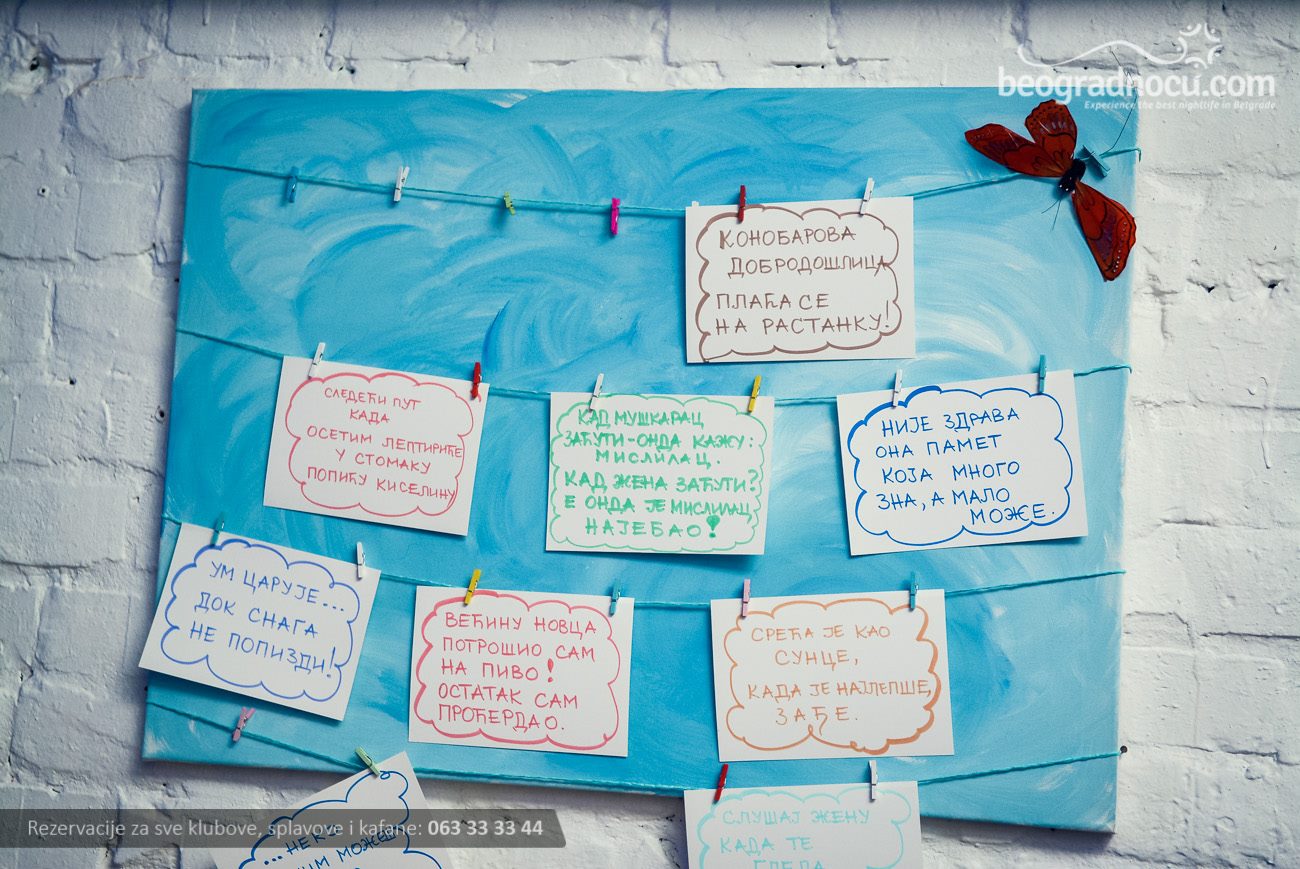 beogradnocu.com
Experience the best nightlife in Belgrade
КОНОБАРОВА
ДОБРОДОШЛИЦА
ПЛАЋА СЕ
НА РАСТАНКУ!
СЛЕДЕЋИ ПУТ
КАДА
ОСЕТИМ ЛЕПТИРИЋЕ
У СТОМАКУ
ПОПИЋУ КИСЕЛИНУ
КАД МУШКАРАЦ
ЗАЋУТИ-ОНДА КАЖУ:
МИСЛИЛАЦ.
КАД ЖЕНА ЗАЋУТИ?
Е ОНДА ЈЕ МИСЛИЛАЦ
НАЈЕБАО!
НИЈЕ ЗДРАВА
ОНА ПАМЕТ
КОЈА МНОГО
ЗНА, А МАЛО
МОЖЕ.
УМ ЦАРУЈЕ...
ДОК СНАГА
НЕ ПОПИЗДИ!
ВЕЋИНУ НОВЦА
ПОТРОШИО САМ
НА ПИВО!
ОСТАТАК САМ
ПРОЋЕРДАО.
СРЕЋА ЈЕ КАО
СУНЦЕ,
КАДА ЈЕ НАЈЛЕПШЕ,
ЗАЂЕ.
СЛУШАЈ ЖЕНУ
КАДА ТЕ
ГЛЕДА
Rezervacije za sve klubove, splavove i kafane: 063 33 33 44